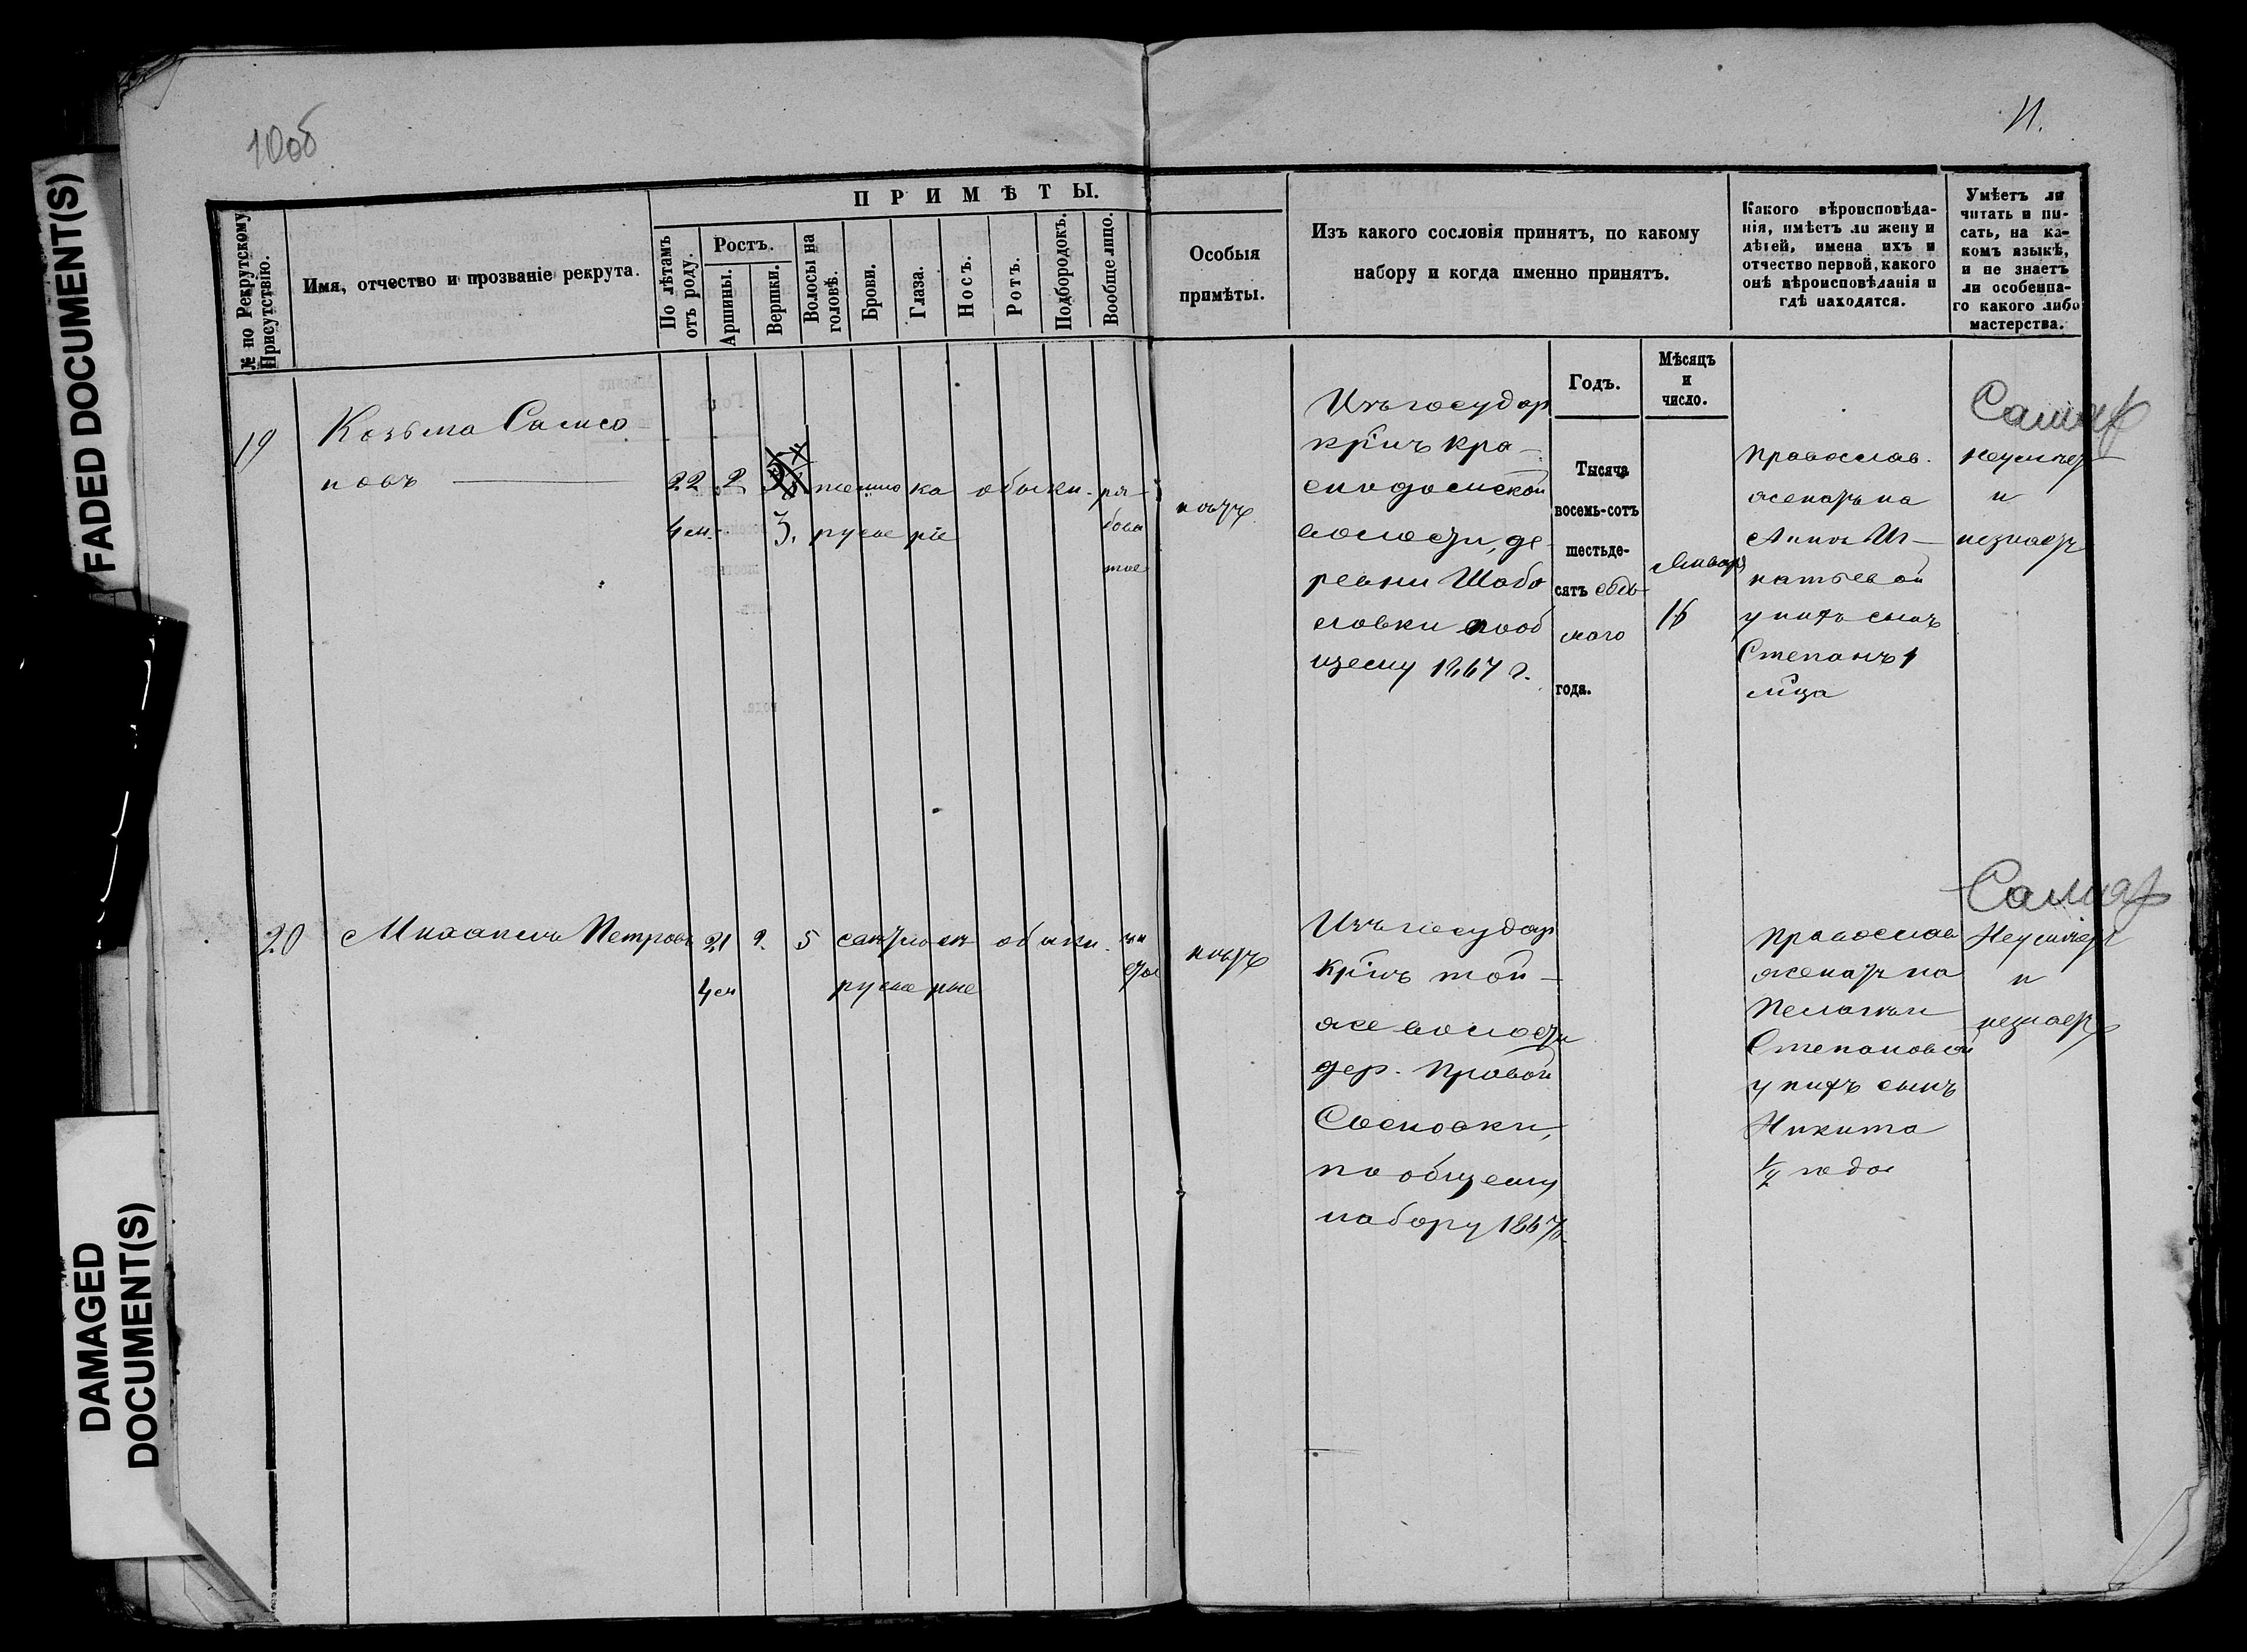 FADED DOCUMENT(S)
DAMAGED
DOCUMENT(S)
10об
11.
ПРИМѢТЫ.
№ по Рекрутскому
Присутствію.
Имя, отчество и прозваніе рекрута.
По лѣтамъ
отъ роду.
Ростъ.
Аршины.
Вершки.
Волосы на
головѣ.
Брови.
Глаза.
Носъ.
Ротъ.
Подбородокъ.
Вообще лицо.
Особыя
примѣты.
Изъ какого сословія принятъ, по какому
набору и когда именно принятъ.
Какого вѣроисповѣда-
нія, имѣетъ ли жену и
дѣтей, имена ихъ и
отчество первой, какого
онѣ вѣроисповѣданія и
гдѣ находятся.
Умѣетъ ли
читать и пи-
сать, на ка-
комъ языкѣ,
и не знаетъ
ли особенна-
го какого либо
мастерства.
Годъ.
Мѣсяцъ
и
число.
19
Козьма Самсо
новъ
22 2 темно ка обыкн. ря
4 м. 3. русые ріе бова
тое
нѣтъ
Изъ государ
кр̃нъ Кра-
снодомской
волости, де-
ревни Шабо
ловки по об
щему 1867 г.
Тысяча
восемь-сотъ
шестьде-
сятъ седь-
мого
года.
Января
16
Православ.
женатъ на
Аннѣ Иг-
натьевой
у нихъ сынъ
Степанъ 1
м̃ца
Неумѣетъ
и
незнаетъ
20
Михаилъ Петровъ 21 2. 5 свѣтло сѣ обыкн. чи
4 м русые рые стое
нѣтъ
Изъ государ
кр̃нъ той-
же волости
дер. Правой
Сосновки,
по общему
набору 1867 г.
Православ
женатъ на
Пелагеи
Степановой
у нихъ сынъ
Никита
½ года
Неумѣетъ
и
незнаетъ